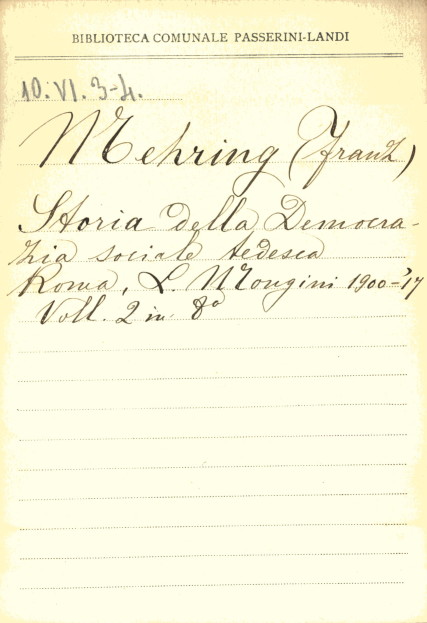 BIBLIOTECA COMUNALE PASSERINI-LANDI
10. VI. 3-4.
Mehring (Franz)
Storia della Democra-
zia sociale tedesca
Roma, L. Mongini 1900-'17
Voll. 2 in 8°